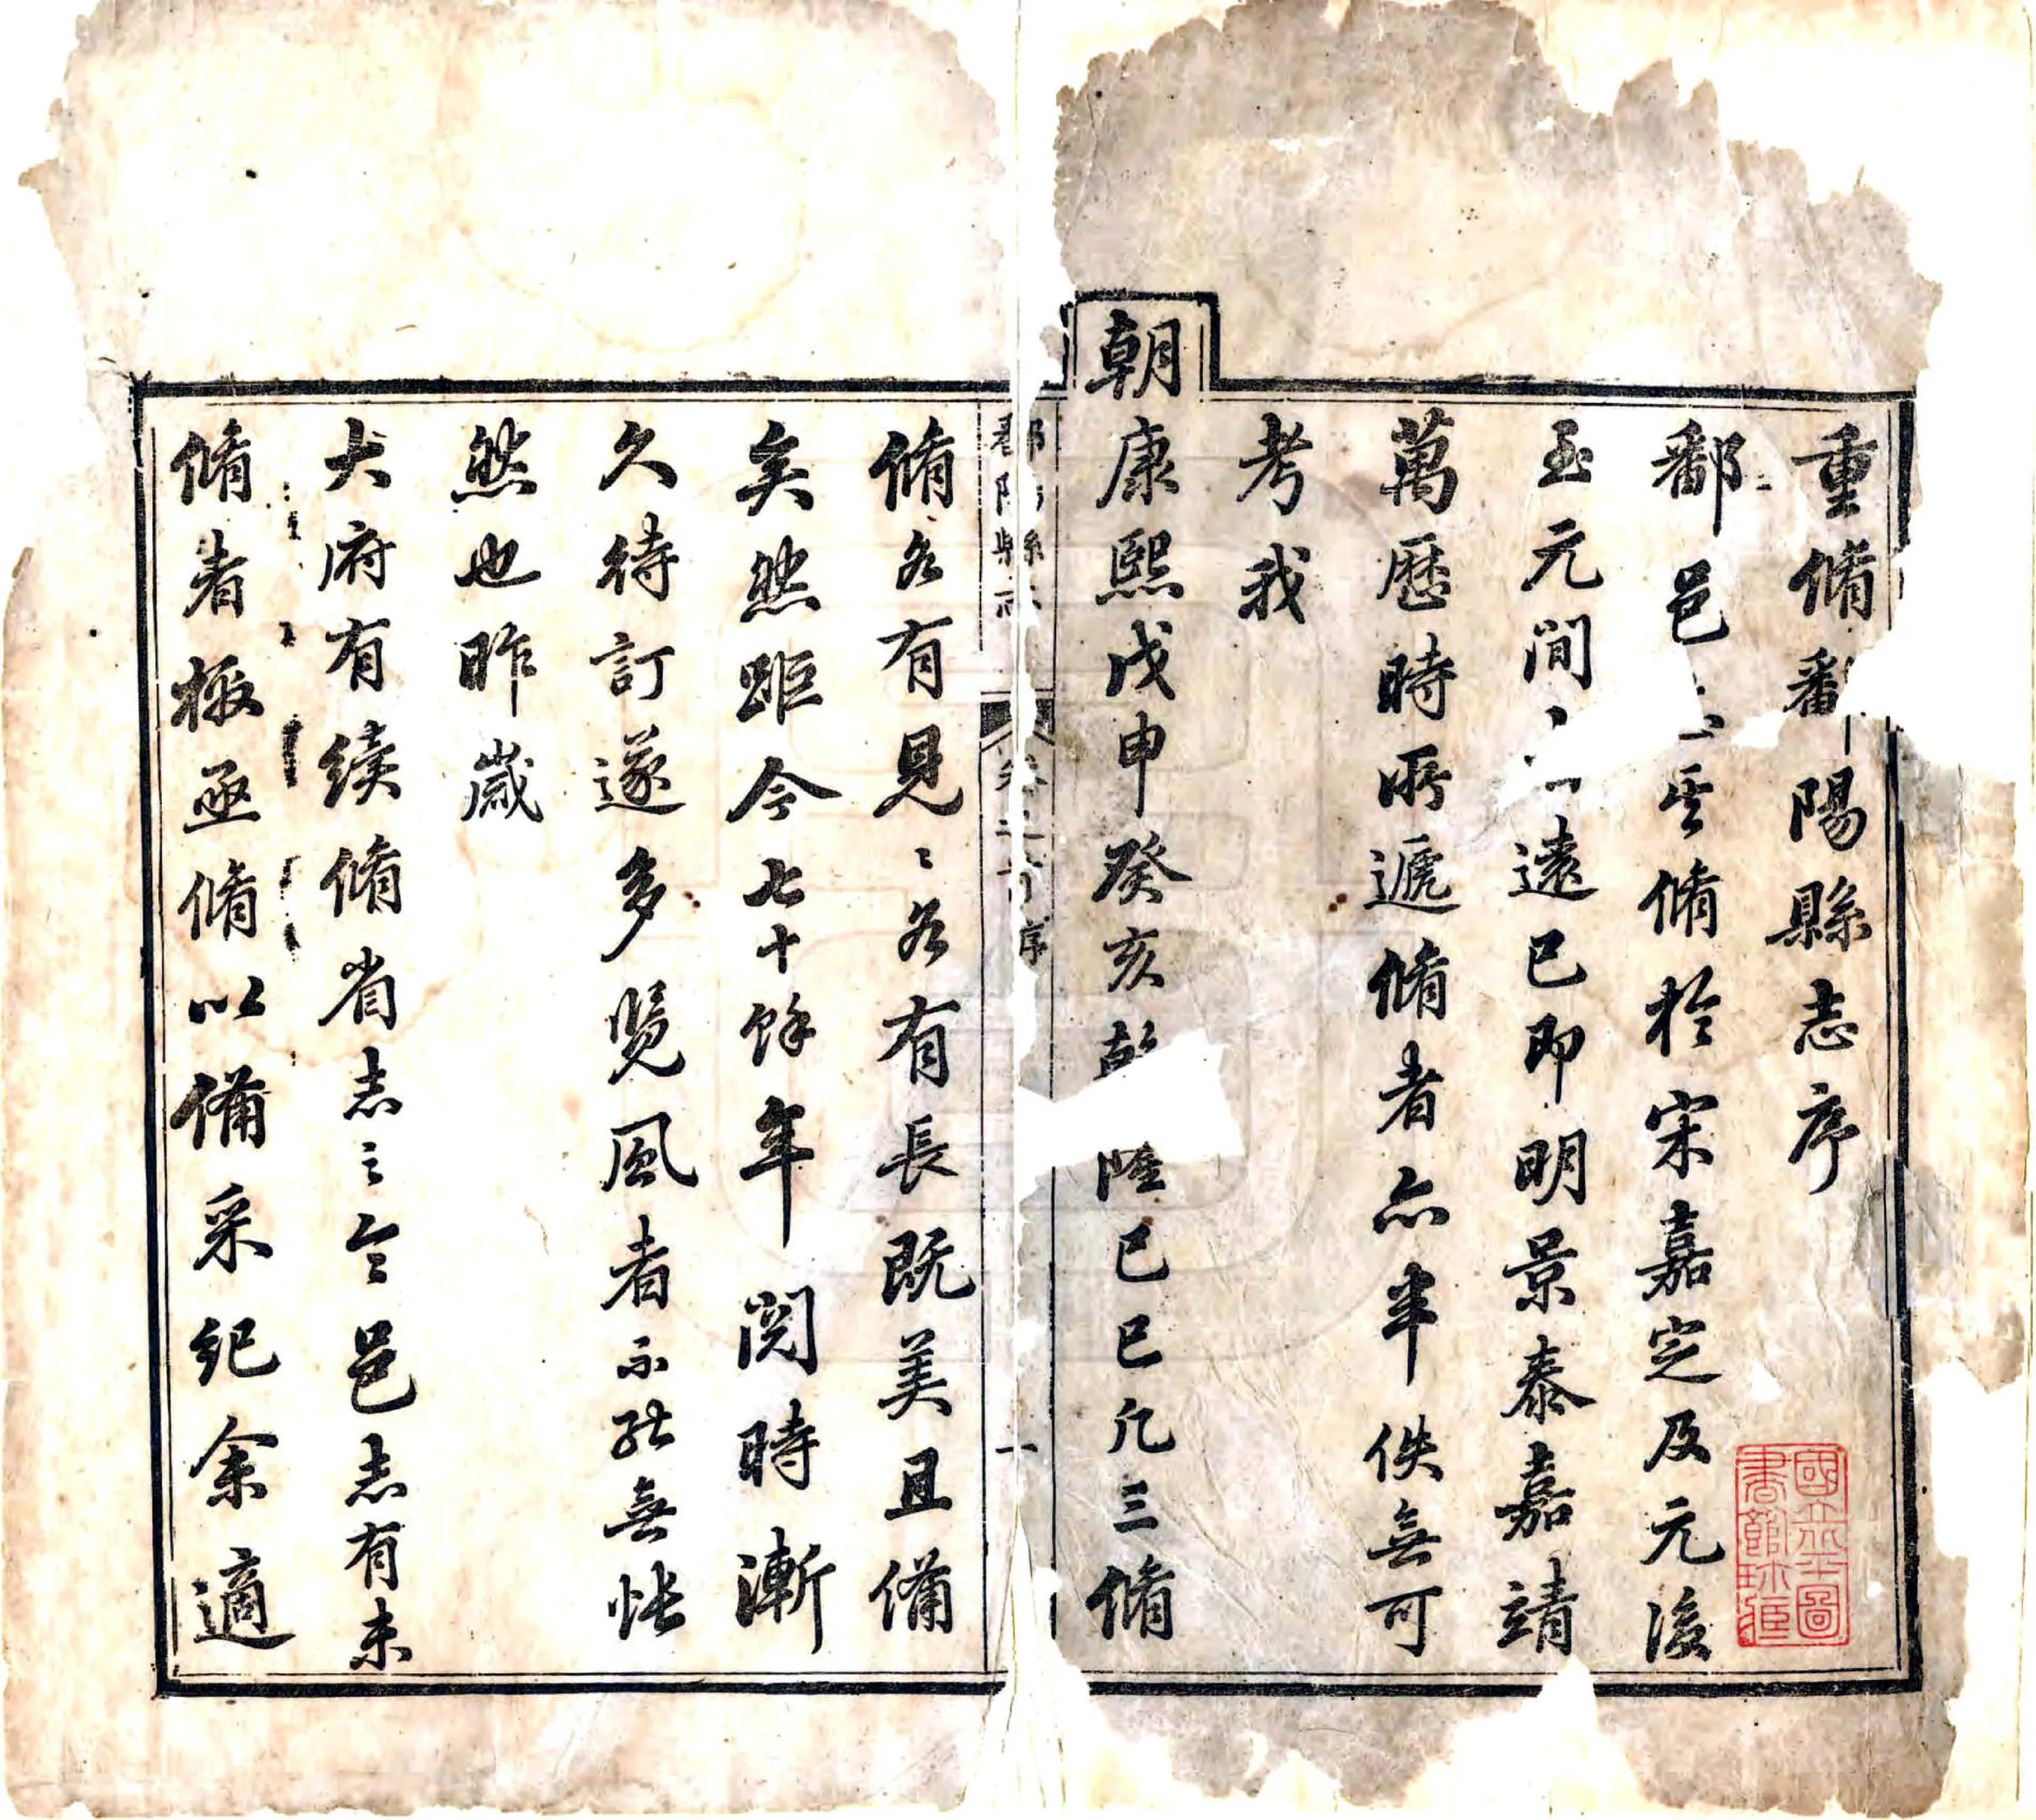 重脩鄱陽縣志序
鄱邑志書脩於宋嘉定及元後
至元間遠已即明景泰嘉靖
萬歷時所遞脩者亦半佚無可
考我
朝康熙戊申癸亥乾隆己巳凡三脩
鄱陽縣志 卷之首 序 一
脩各有見〻各有長既美且備
矣然距今七十餘年閱時漸
久待訂遂多覽風者不能無悵
然也昨歲
大府有續脩省志之令邑志有未
脩者檄亟脩以備采紀余適
國立北平圖
書館珍藏